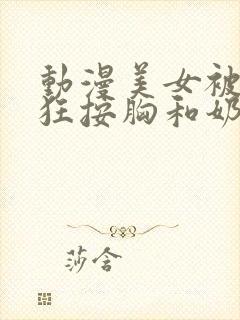 動漫美女被
狂按胸和奶
莎含